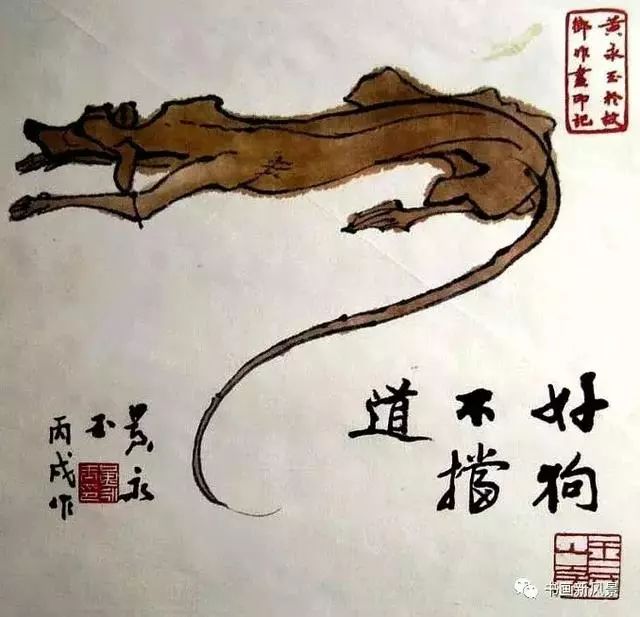 黄永玉於故
鄉作畫印記
好狗
不擋
道
黄永
玉
丙戌作
书画新风景